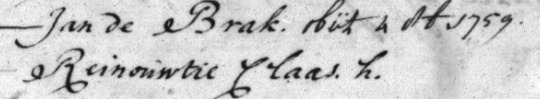 Jan de Brak. obijt 4 8b 1759.
Reinouwtie Claas. h.